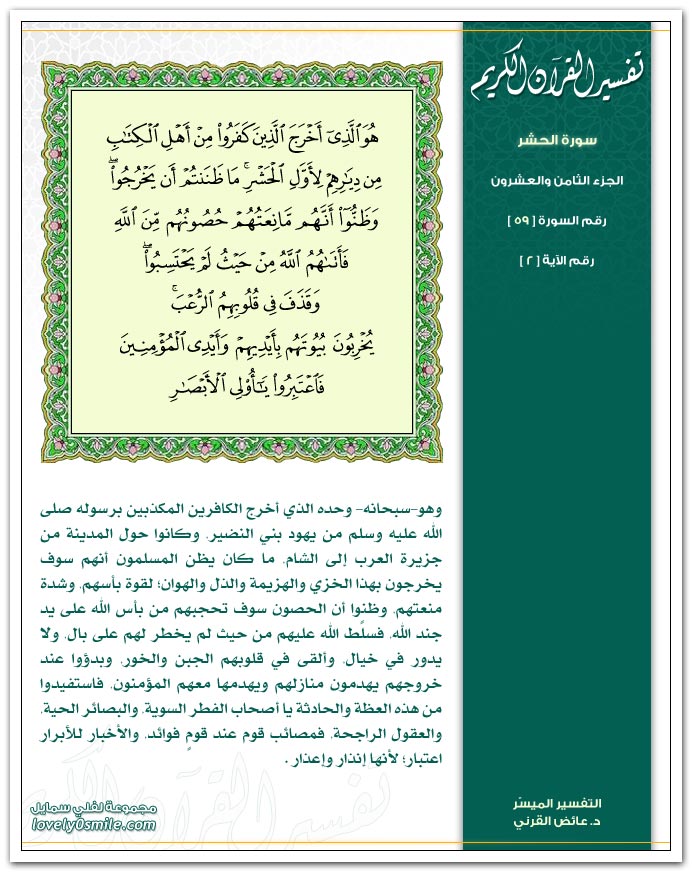 تفسير القرآن الكريم
سورة الحشر
الجزء الثامن والعشرون
رقم السورة [ ٥٩ ]
رقم الآية [ ٢ ]
هُوَ ٱلَّذِىٓ أَخْرَجَ ٱلَّذِينَ كَفَرُوا۟ مِنْ أَهْلِ ٱلْكِتَٰبِ
مِن دِيَٰرِهِمْ لِأَوَّلِ ٱلْحَشْرِ ۚ مَا ظَنَنتُمْ أَن يَخْرُجُوا۟ ۖ
وَظَنُّوٓا۟ أَنَّهُم مَّانِعَتُهُمْ حُصُونُهُم مِّنَ ٱللَّهِ
فَأَتَىٰهُمُ ٱللَّهُ مِنْ حَيْثُ لَمْ يَحْتَسِبُوا۟ ۖ
وَقَذَفَ فِى قُلُوبِهِمُ ٱلرُّعْبَ ۚ
يُخْرِبُونَ بُيُوتَهُم بِأَيْدِيهِمْ وَأَيْدِى ٱلْمُؤْمِنِينَ
فَٱعْتَبِرُوا۟ يَٰٓأُو۟لِى ٱلْأَبْصَٰرِ
وهو-سبحانه- وحده الذي أخرج الكافرين المكذبين برسوله صلى
الله عليه وسلم من يهود بني النضير، وكانوا حول المدينة من
جزيرة العرب إلى الشام، ما كان يظن المسلمون أنهم سوف
يخرجون بهذا الخزي والهزيمة والذل والهوان؛ لقوة بأسهم، وشدة
منعتهم، وظنوا أن الحصون سوف تحجبهم من بأس الله على يد
جند الله، فسلَّط الله عليهم من حيث لم يخطر لهم على بال، ولا
يدور في خيال، وألقى في قلوبهم الجبن والخور، وبدؤوا عند
خروجهم يهدمون منازلهم ويهدمها معهم المؤمنون، فاستفيدوا
من هذه العظة والحادثة يا أصحاب الفطر السوية، والبصائر الحية،
والعقول الراجحة، فمصائب قوم عند قومٍ فوائد، والأخبار للأبرار
اعتبار؛ لأنها إنذار وإعذار .
تفسير القرآن الكريم
التفسير الميسّر
د. عائض القرني
مجموعة لفلي سمايل
lovely0smile.com